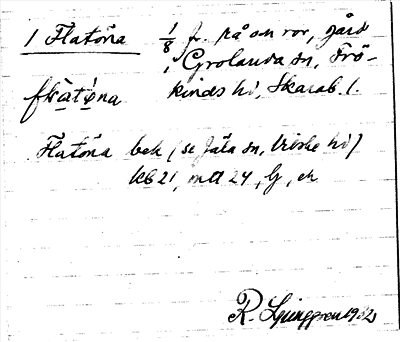 1 Flatöna 1/8 f. rå om ror, gård
i Grolanda sn, Frö-
flatöna kinds hd, Skarab. l.
Flatöna bek (se Jäla sn, Vilske hd)
KB 21, mtl 24, lj, ek
R. Ljunggren 1952